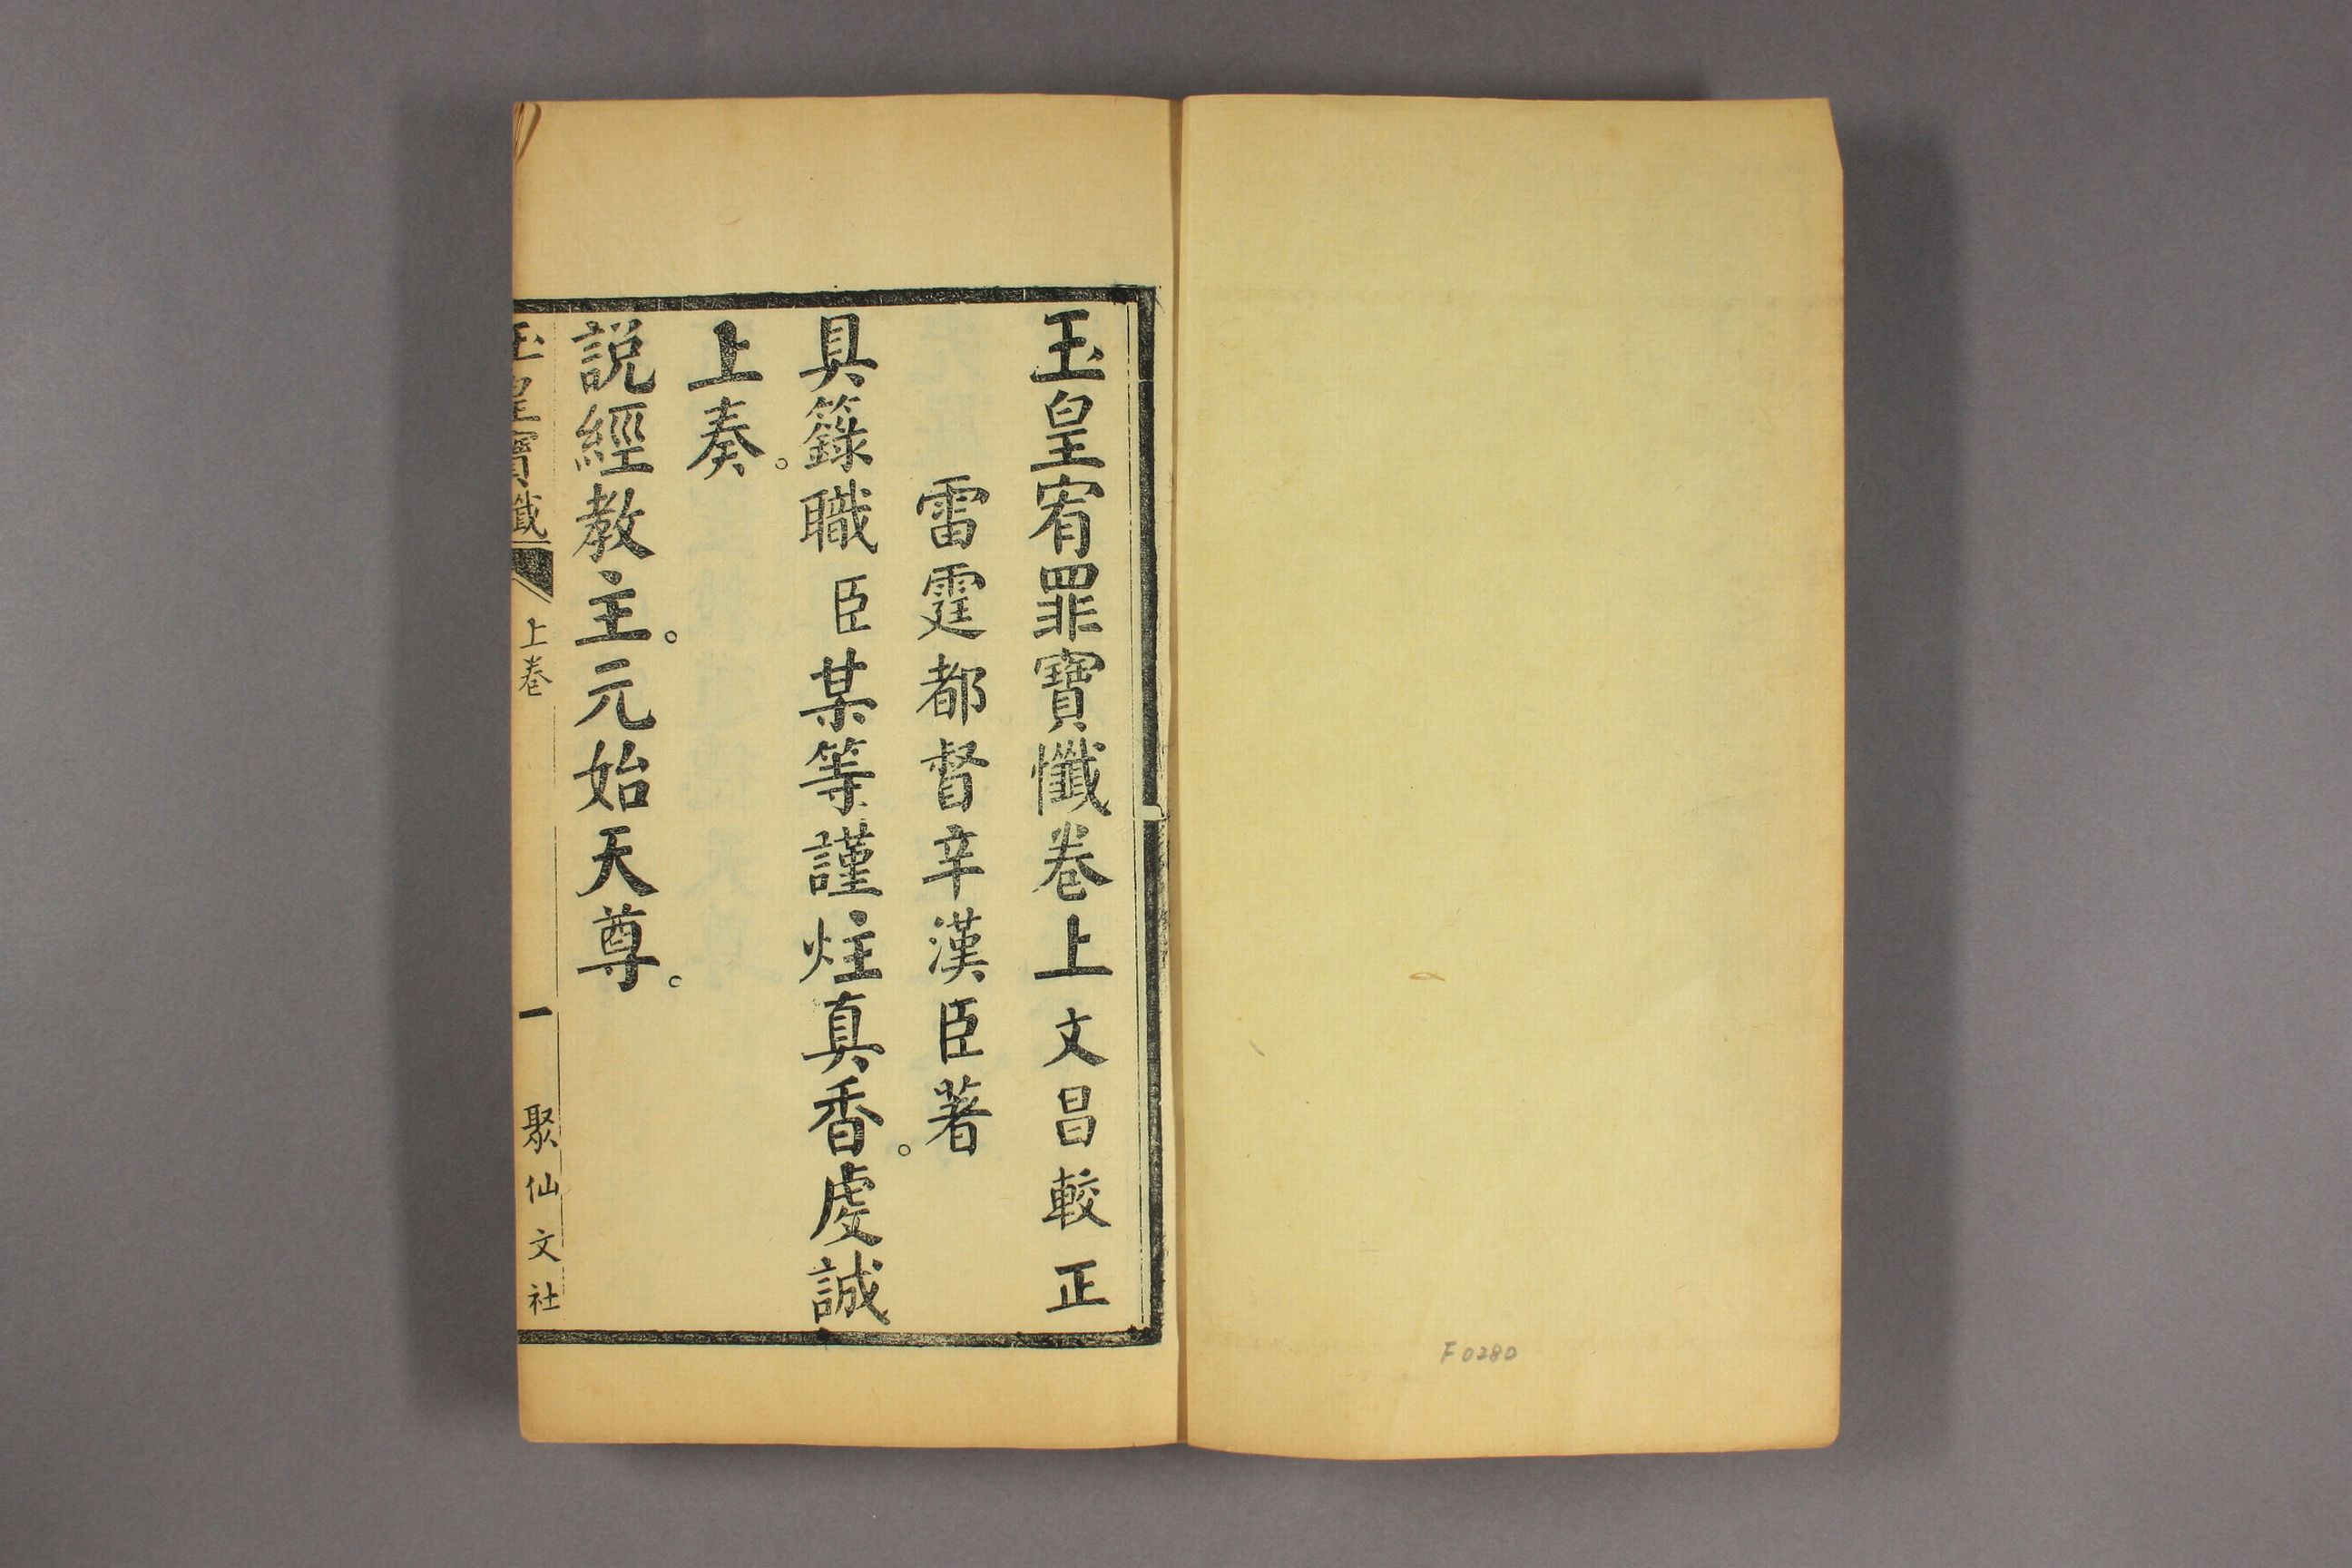 玉皇宥罪寶懺卷上 文昌較正
雷霆都督辛漢臣著
具籙職臣某等謹炷真香。虔誠
上奏。
説經教主。元始天尊。
玉皇寶懺 上卷 一 聚仙文社
F0280